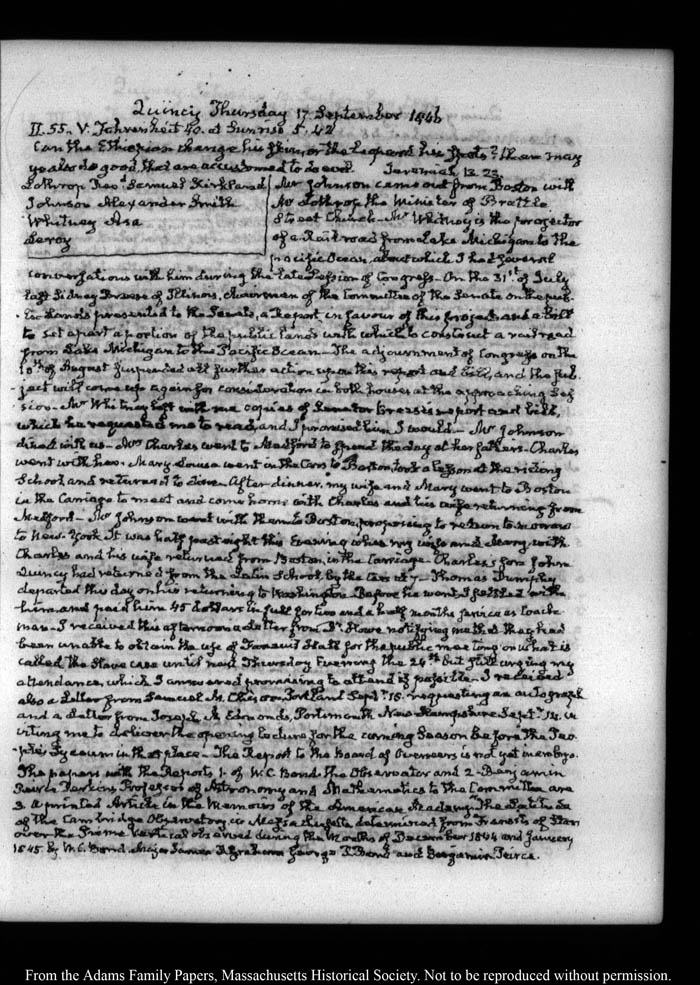 Quincy Thursday 17 September 1846
II. 55. V. Fahrenheit 40. at Sunrise 5.42
Can the Ethiopian change his skin, or the Leopard his spots? then may
ye also do good, that are accustomed to do evil. Jeremiah 13.23.
Lothrop Samuel Kirkland
Johnson Alexander Smith
Whitney Asa
Leroy
Mr Johnson came out from Boston with
Mr Lothrop the Minister of Brattle
Street Church - Mr Whitney is the projector
of a Railroad from Lake Michigan to the
pacific Ocean, about which I had several
conversations with him during the late Session of Congress. On the 31st of July
last Sidney Breese of Illinois, Chairman of the Committee of the Senate on the pub-
-lic Lands presented to the Senate, a Report in favour of this project and a bill
to set apart a portion of the public lands with which to construct a railroad
from Lake Michigan to the Pacific Ocean - The adjournment of Congress on the
10th of August suspended all further action upon this report and bill, and the sub-
-ject will come up again for consideration in both houses at the approaching Ses-
sion - Mr Whitney left with me copies of Senator Breese's report and bill,
which he requested me to read, and I promised him I would - Mr Johnson
dined with us - Mrs Charles went to Medford to spend the day at her father's - Charles
went with her. Mary Louisa went in the Cars to Boston, took a lesson at the riding
School, and returned to dine. After dinner, my wife and Mary went to Boston
in the Carriage to meet and come home with Charles and his wife returning from
Medford - Mr Johnson went with them to Boston, proposing to return tomorrow
to New-York. It was half past eight this Evening when my wife and Mary, with
Charles and his wife returned from Boston, in the Carriage. Charles's son John
Quincy had returned from the Latin School, by the Cars at 7 - Thomas Dumphey
departed this day on his returning to Washington. Before he went I settled with
him and paid him 45 dollars in full for two and a half months service as Coach-
man - I received this afternoon a Letter from Dr Howe notifying me that they had
been unable to obtain the use of Faneuil Hall for the public meeting on what is
called the Slave case until next Thursday Evening the 24th but still urging my
attendance, which I answered promising to attend if possible - I received
also a Letter from Samuel M. Portland Septr 15. requesting an autograph
and a letter from Joseph A. Edmonds, Portsmouth New Hampshire Septr 14. in
viting me to deliver the opening Lecture for the coming Season before the Peo-
-ple's Lyceum in that place - The Report to the Board of Overseers is not yet in embryo.
The papers with the Reports 1. of W. C. Bond the Observator and 2. Benjamin
Peirce Perkins Professor of Astronomy and Mathematics to the Committee are
3. A printed Article in the Memoirs of the American Academy. The Latitude
of the Cambridge Observatory, in Massachusetts determined from transits of Stars
over the Prime Vertical observed during the Months of December 1844 and January
1845 by W. C. Bond, Major James D. Graham George P. Bond and Benjamin Peirce.
From the Adams Family Papers, Massachusetts Historical Society. Not to be reproduced without permission.